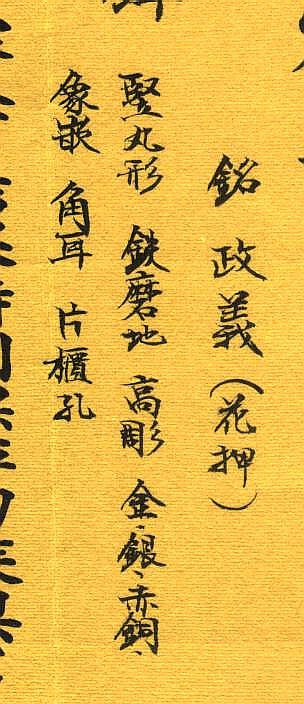 銘 政義（花押）
竪丸形 鉄磨地 高彫 金・銀・赤銅・
象嵌 角耳 片櫃孔